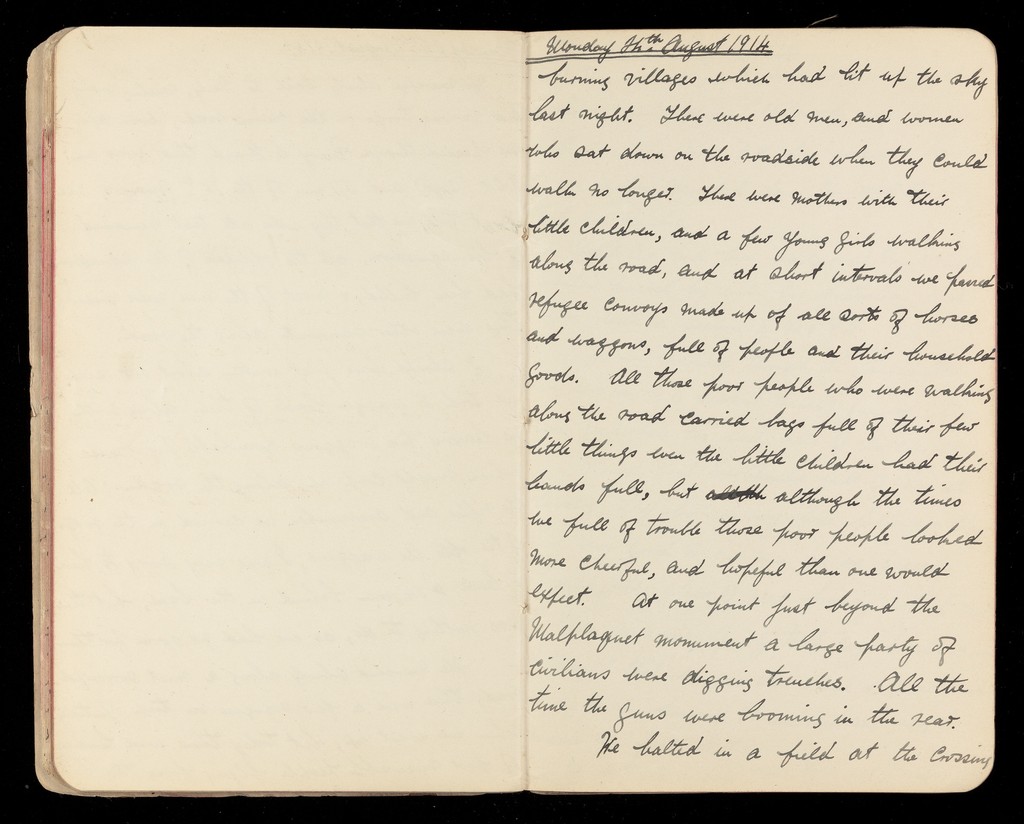 Monday 24th August 1914
burning villages which had lit up the sky
last night. There were old men, and women
who sat down on the roadside when they could
walk no longer. There were mothers with their
little children, and a few young girls walking
along the road, and at short intervals we passed
refugee convoys made up of all sorts of horses
and waggons, full of people and their household
goods. All those poor people who were walking
along the road carried bags full of their few
little things even the little children had their
hands full, but although the times
we full of trouble those poor people looked
more cheerful, and hopeful than one would
expect. At one point just beyond the
Malplaquet monument a large party of
civilians were digging trenches. All the
time the guns were booming in the rear.
We halted in a field at the crossing